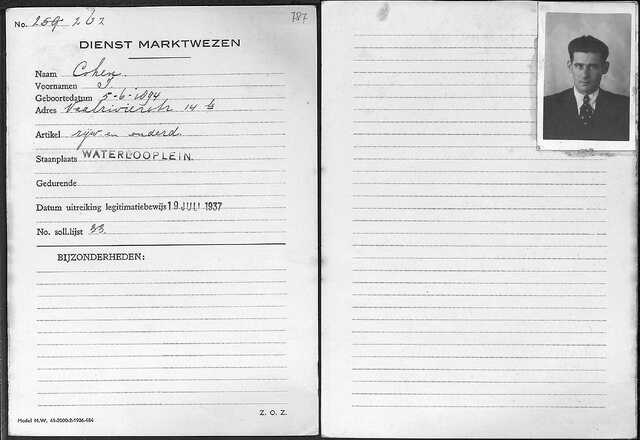 No. 259 262
787
DIENST MARKTWEZEN
Naam Cohen.
Voornamen J
Geboortedatum 5-6-1894
Adres Vaalrivierstr 14 b
Artikel rijw en onderd.
Staanplaats WATERLOOPLEIN.
Gedurende
Datum uitreiking legitimatiebewijs 19 JULI 1937
No. soll.lijst 33
BIJZONDERHEDEN:
Model M.W. 41-2000-2-1936-484
Z. O. Z.